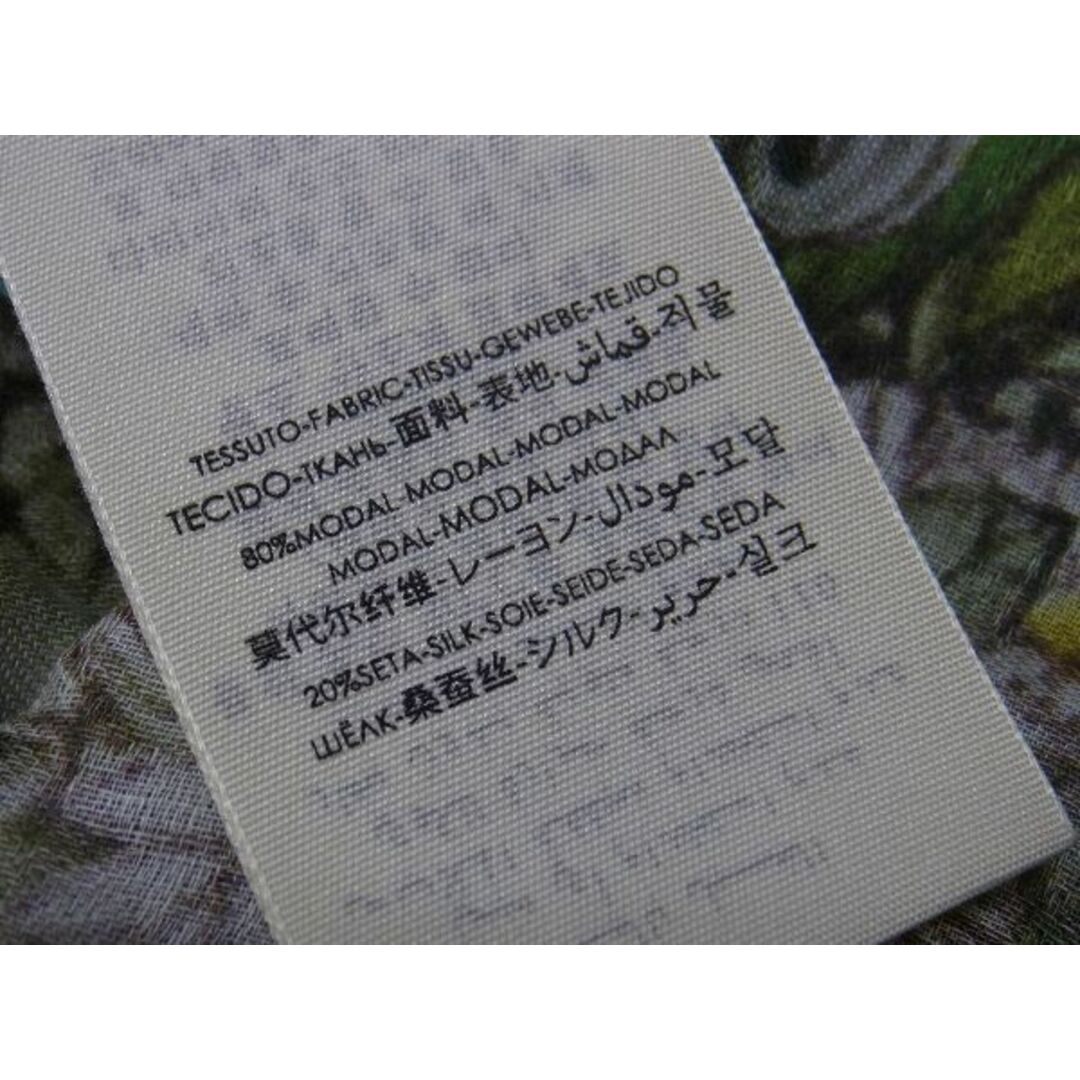 TESSUTO-FABRIC-TISSU-GEWEBE-TEJIDO
TECIDO-ТКАНЬ-面料-表地-قماش-직물
80%MODAL-MODAL-MODAL-MODAL
MODAL-MODAL-МОДАЛ
莫代尔纤维-レーヨン-مودال-모달
20%SETA-SILK-SOIE-SEIDE-SEDA-SEDA
ШЁЛК-桑蚕丝-シルク-حرير-실크